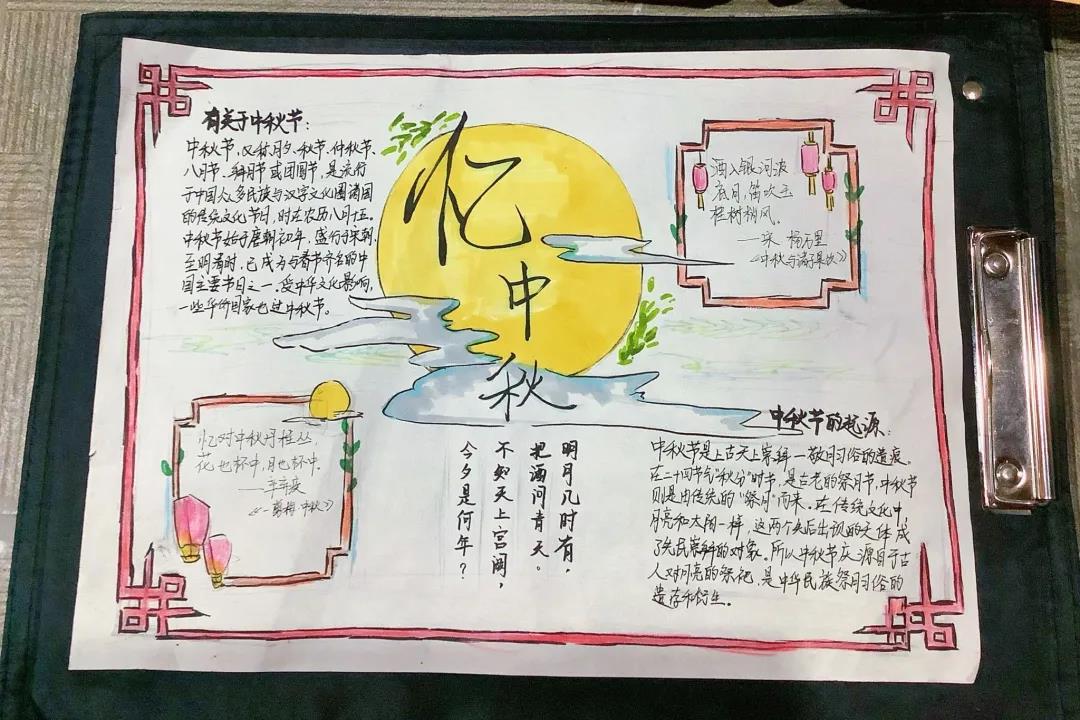 有关于中秋节:
中秋节,又称月夕、秋节、仲秋节、
八月节、拜月节或团圆节,是流行
于中国众多民族与汉字文化圈诸国
的传统文化节日,时在农历八月十五。
中秋节始于唐朝初年,盛行于宋朝,
至明清时,已成为与春节齐名的中
国主要节日之一。受中华文化影响,
一些华侨国家也过中秋节。
忆
中
秋
酒入银河波
底月,笛吹玉
桂树梢风。
—宋 杨万里
《中秋与诸子果饮》
忆对中秋丹桂丛,
花也杯中,月也杯中。
——辛弃疾
《一剪梅·中秋》
明月几时有,
把酒问青天。
不知天上宫阙,
今夕是何年?
中秋节的起源:
中秋节是上古天上崇拜—敬月习俗的遗痕。
在二十四节气"秋分"时节,是古老的祭月节,中秋节
则是由传统的"祭月"而来。在传统文化中,
月亮和太阳一样,这两个先后出现的天体成
了先民崇拜的对象。所以中秋节庆源自于古
人对月亮的祭祀,是中华民族祭月习俗的
遗存和衍生。